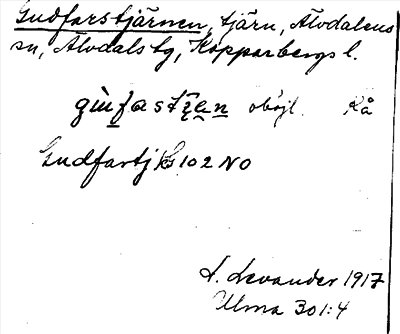 Gudfarstjärnen, tjärn, Älvdalens
sn, Älvdals tg, Kopparbergs l.
oböjl. Rå
Gudfartj G 102 NO
L. Levander 1917
Ulma 301:4